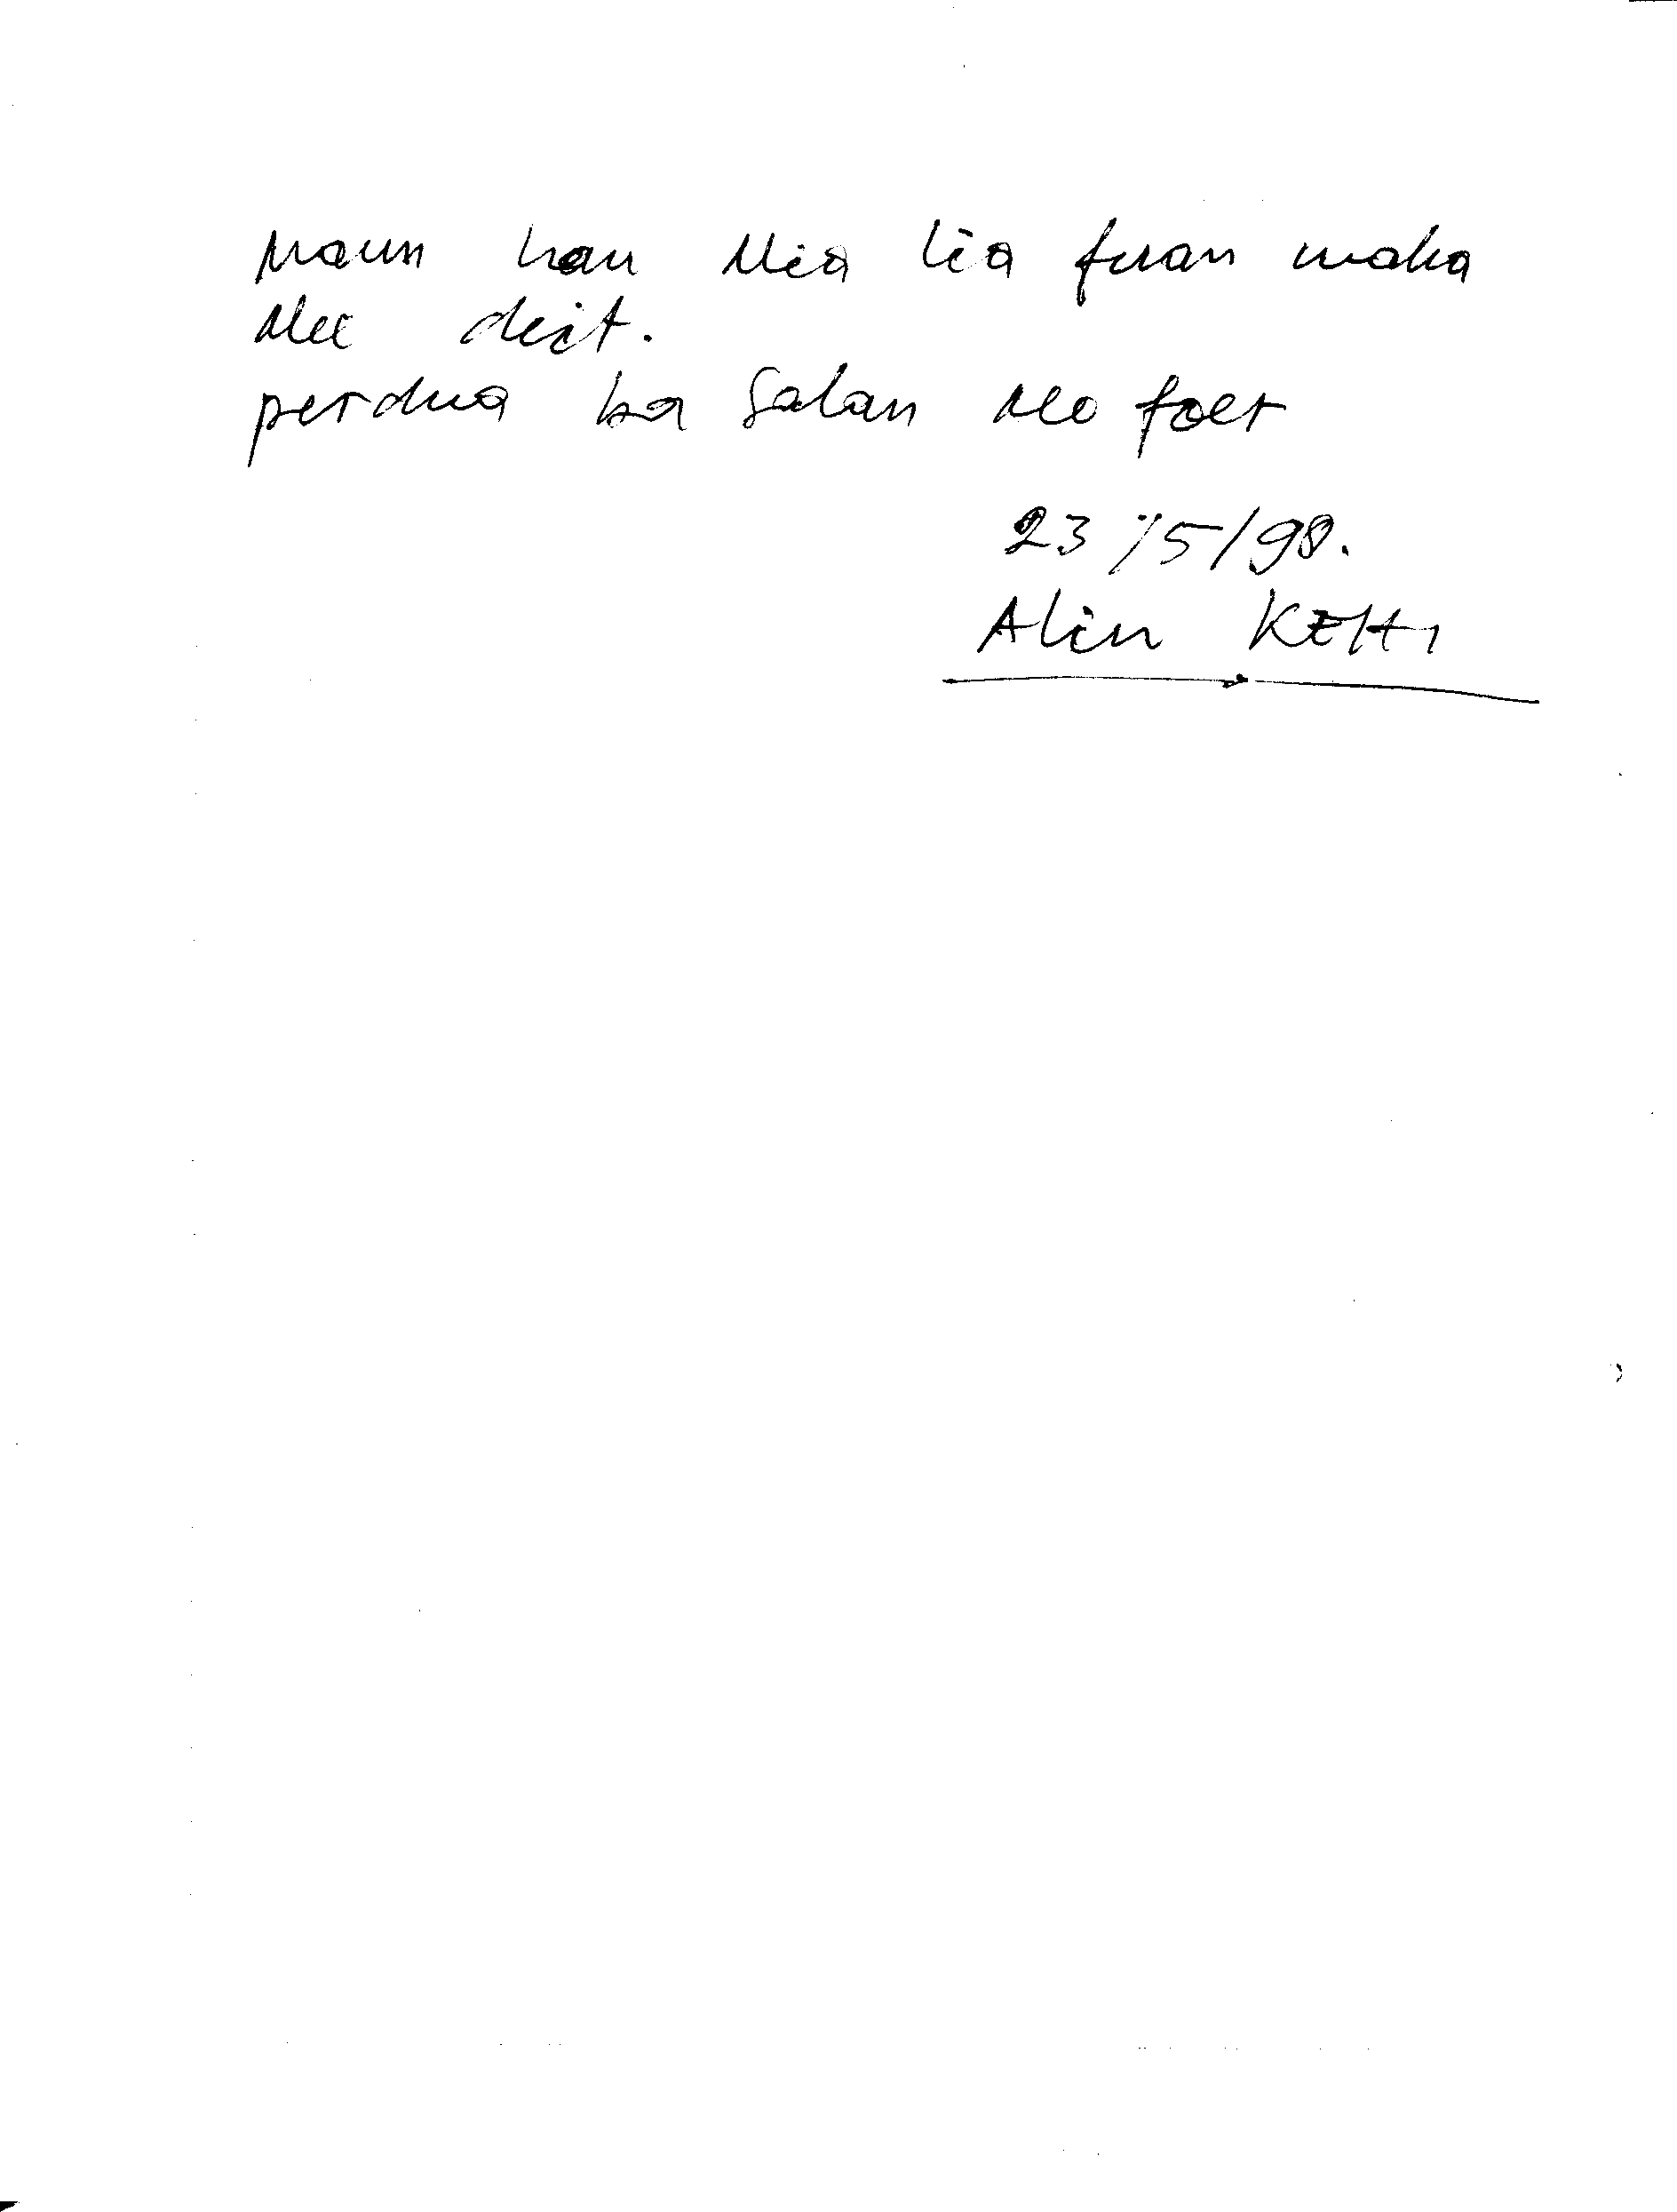 Maun hau Nia lia fuan maka
Nee deit.
perdua ba Salan No foer
23/5/98.
Alin KEHI